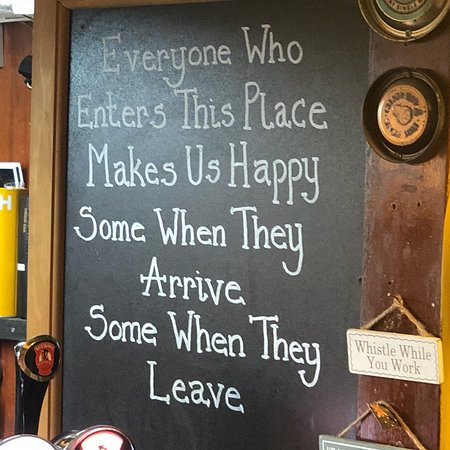 Everyone Who
Enters This Place
Makes Us Happy
Some When They
Arrive
Some When They
Leave
Whistle While
You Work
H